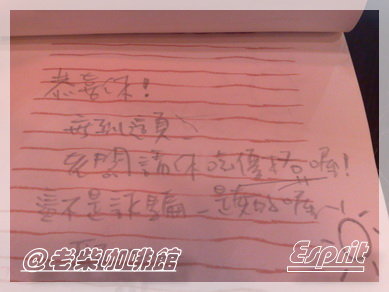 恭喜你!
老闆請你吃優格喔!
這不是詐騙~是真的喔~!
@老柴咖啡館
Esprit